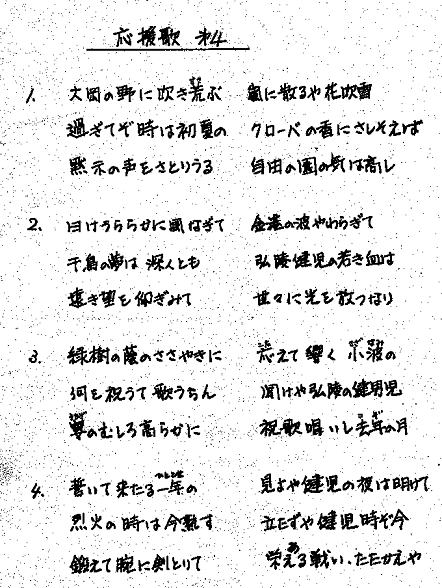 応援歌 才4
1. 大岡の野に吹き荒ぶ 嵐に散るや花吹雪
過ぎてぞ時は初夏の クローバの香にさしそえば
黙示の声をさとりうる 自由の園の気は高し
2. 日はうららかに風なぎて 金港の波やわらぎて
千鳥の夢は深くとも 弘陵健児の若き血は
遠き望を仰ぎみて 世々に光を放つなり
3. 緑樹の蔭のささやきに 応えて響く小波の
何を祝うて歌うらん 聞けや弘陵の健男児
のむしろ高らかに 祝歌唱いし去年の月
4. 誓いて来たる一年の 見よや健児の夜は明けて
烈火の時は今熟す 立たずや健児時ぞ今
鍛えて腕に剣とりて 栄えある戦い、たたかえや